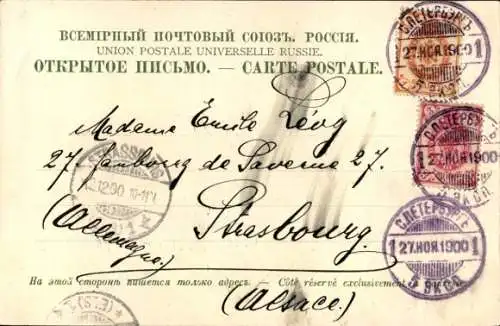 ВСЕМІРНЫЙ ПОЧТОВЫЙ СОЮЗЪ. РОССІЯ.
UNION POSTALE UNIVERSELLE RUSSIE.
ОТКРЫТОЕ ПИСЬМО. — CARTE POSTALE.
С.ПЕТЕРБУРГЪ
1 27.НОЯ.1900 1
5 ЭКСП.
С.ПЕТЕРБУРГЪ
1 27.НОЯ.1900
5 ЭКСП.
С.ПЕТЕРБУРГЪ
1 27.НОЯ.1900 1
5 ЭКСП.
Madame Emile Lévy
27 faubourg de Saverne 27.
Strasbourg
(Allemagne)
STRASSBURG
12.00
1 z
На этой сторонѣ пишется только адресъ. — Côté réservé exclusivement
(Alsace)
*(ELS)